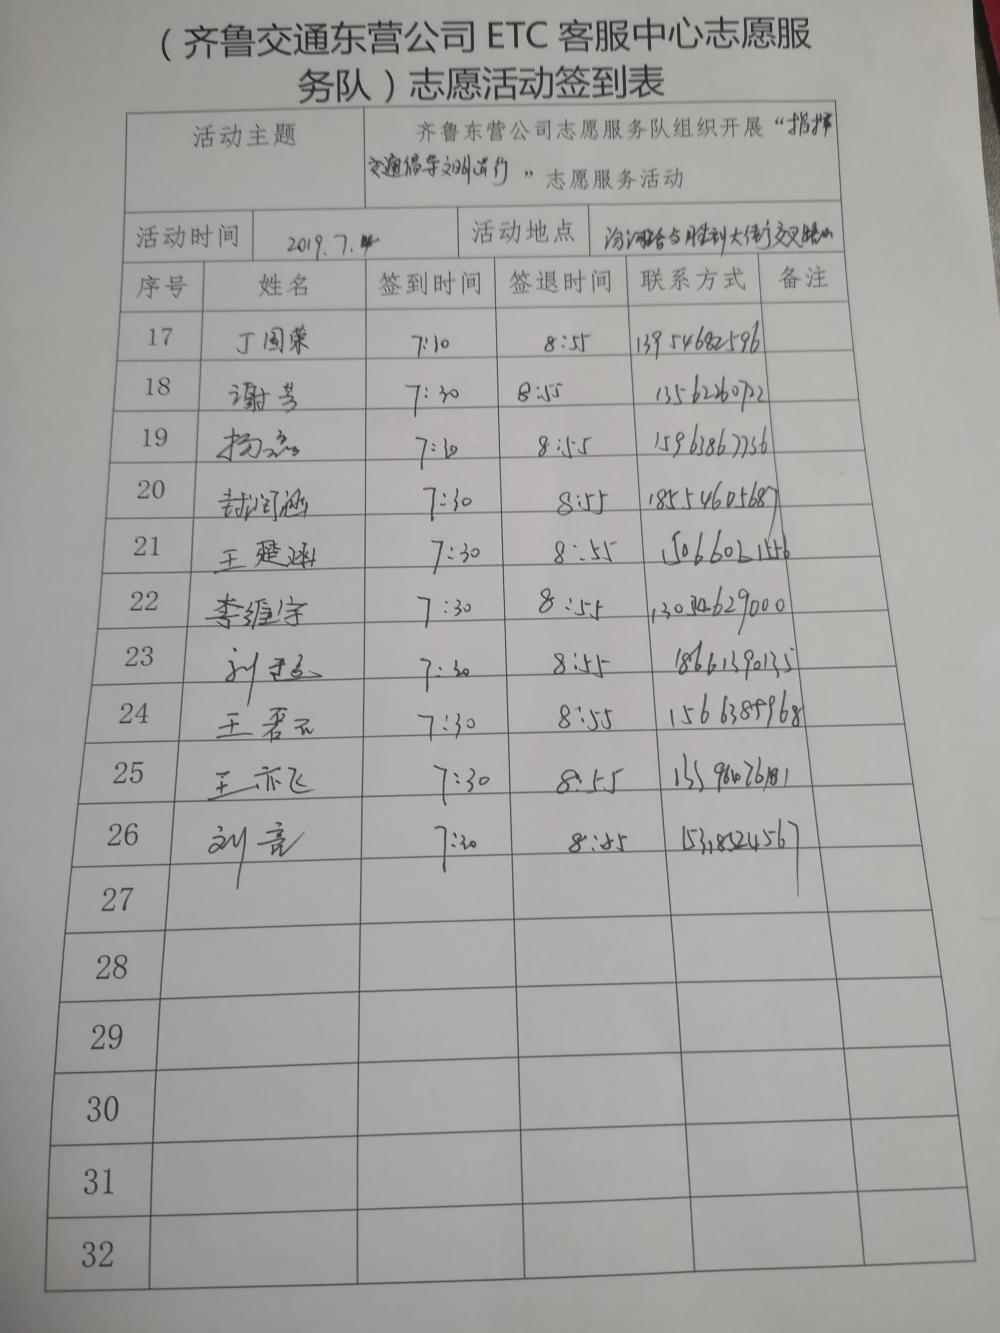 （齐鲁交通东营公司 ETC 客服中心志愿服
务队）志愿活动签到表
活动主题 齐鲁东营公司志愿服务队组织开展“指挥
交通倡导文明出行 ”志愿服务活动
活动时间 2019.7. 活动地点 汾河路与胜利大街交叉路口
序号 姓名 签到时间 签退时间 联系方式 备注
17 丁国荣 7:30 8:55 13954682596
18 谢芳 7:30 8:55 13562260722
19 杨 7:30 8:55 15963867756
20 封润涵 7:30 8:55 18554605687
21 王楚涵 7:30 8:55
22 李维宇 7:30 8:55
23 刘 7:30 8:55 18661390135
24 王 7:30 8:55
25 王亦飞 7:30 8:55
26 刘亮 7:30 8:55
27
28
29
30
31
32